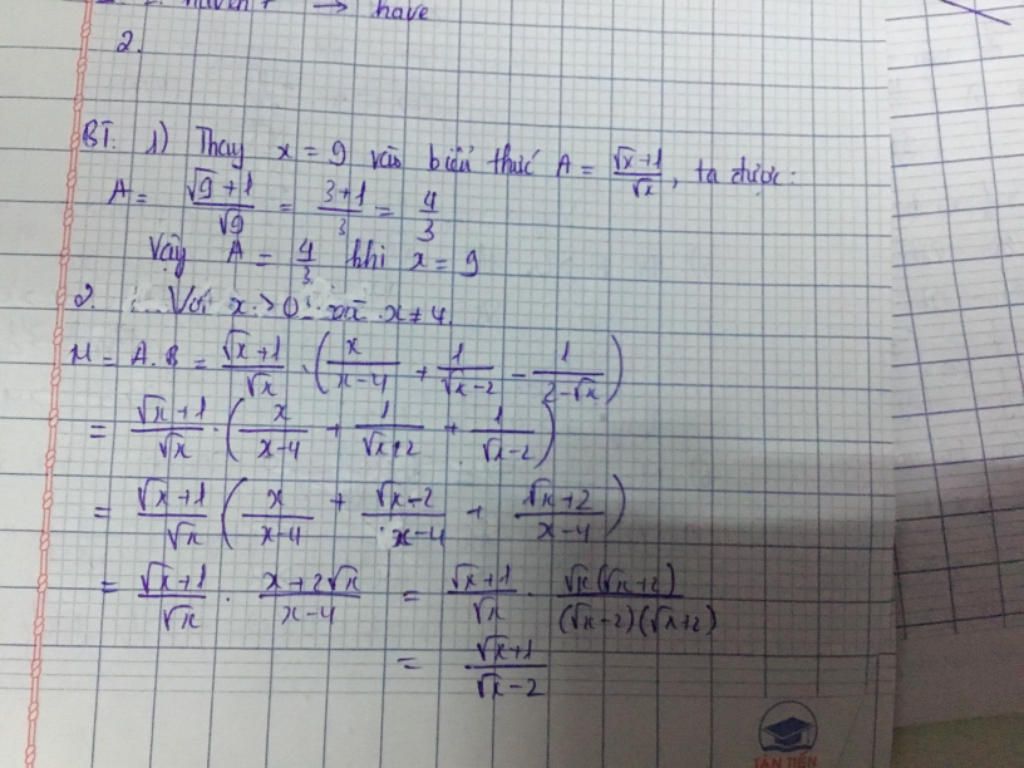 haven't → have
2.
BT. 1) Thay x = 9 vào biểu thức A = (√x+1)/√x, ta được:
A = (√9+1)/√9 = (3+1)/3 = 4/3
Vậy A = 4/3 khi x = 9
2. Với x > 0 và x ≠ 4
M = A.B = (√x+1)/√x · (x/(x-4) + 1/(√x-2) - 1/(2-√x))
= (√x+1)/√x · (x/(x-4) + 1/(√x+2) + 1/(√x-2))
= (√x+1)/√x (x/(x-4) + (√x-2)/(x-4) + (√x+2)/(x-4))
= (√x+1)/√x · (x+2√x)/(x-4) = (√x+1)/√x · √x(√x+2)/((√x-2)(√x+2))
= (√x+1)/(√x-2)
TÂN TIẾN